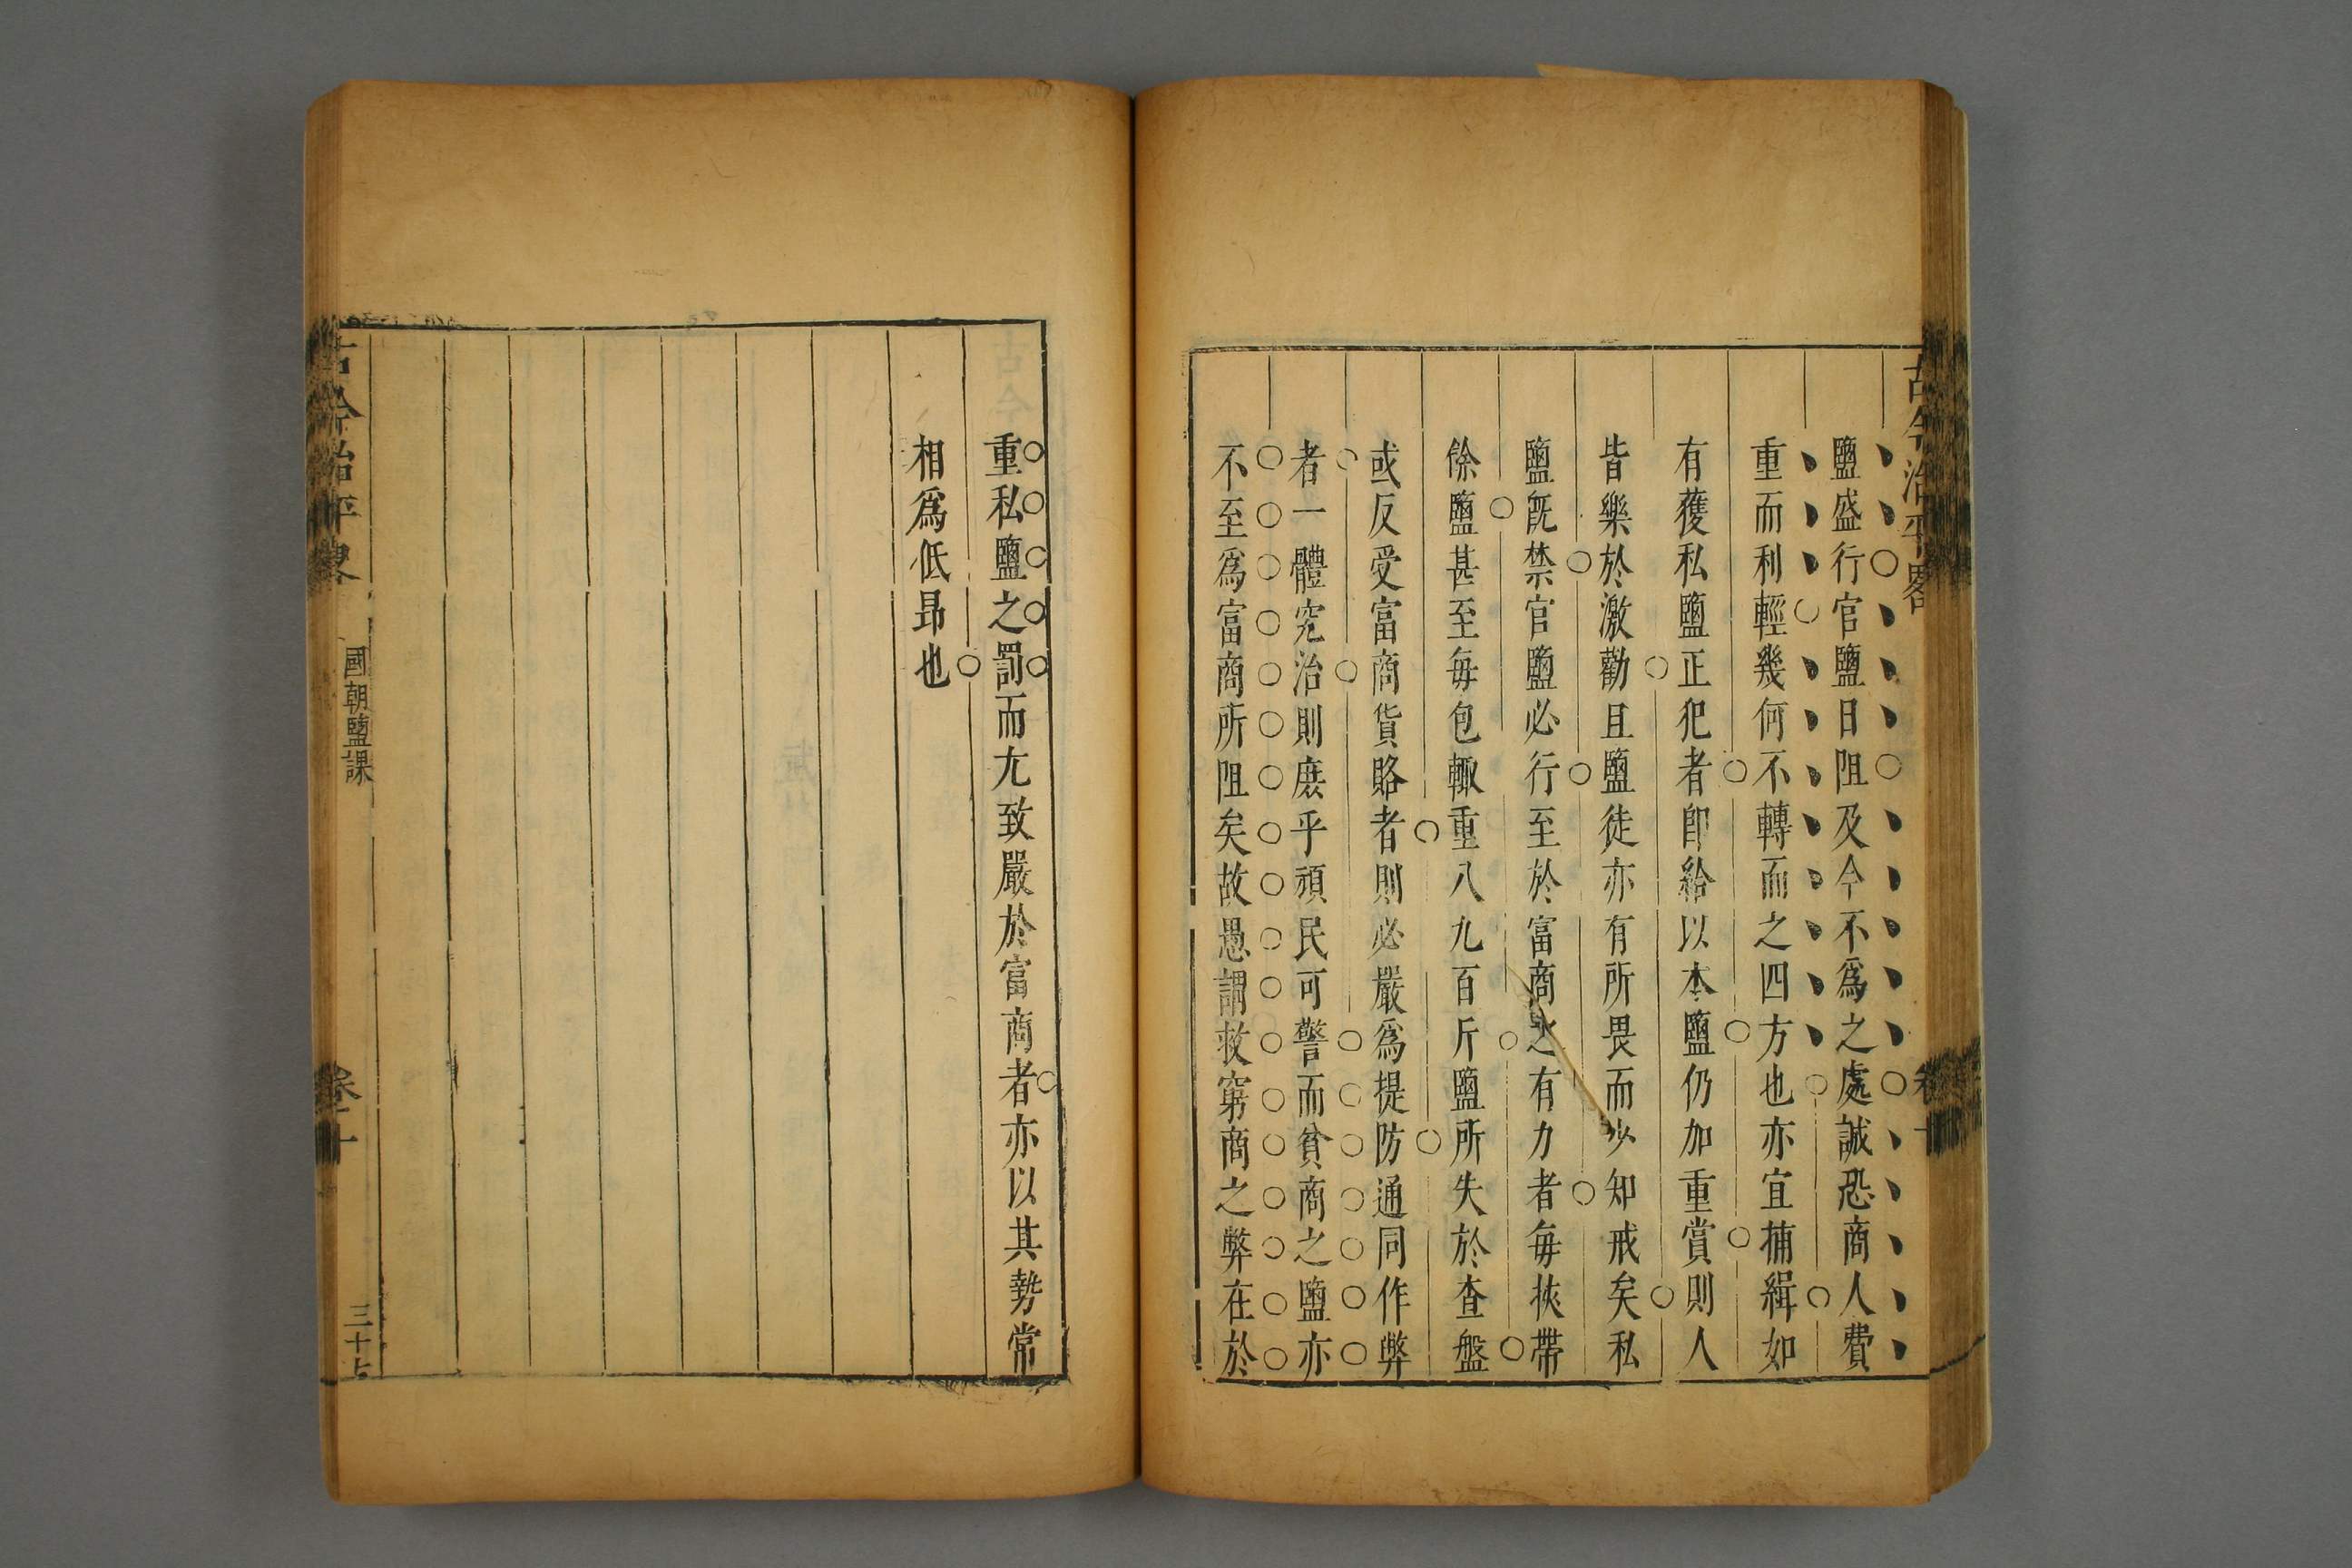 古今治平畧
卷十
鹽盛行官鹽日阻及今不爲之處誠恐商人費
重而利輕幾何不轉而之四方也亦宜捕緝如
有獲私鹽正犯者卽給以本鹽仍加重賞則人
皆樂於激勸且鹽徒亦有所畏而少知戒矣私
鹽旣禁官鹽必行至於富商之有力者每挾帶
餘鹽甚至每包輙重八九百斤鹽所失於查盤
或反受富商貨賂者則必嚴爲提防通同作弊
者一體究治則庶乎頑民可警而貧商之鹽亦
不至爲富商所阻矣故愚謂救窮商之弊在於
重私鹽之罰而尢致嚴於富商者亦以其勢常
相爲低昂也
古今治平畧
國朝鹽課
卷十
三十七